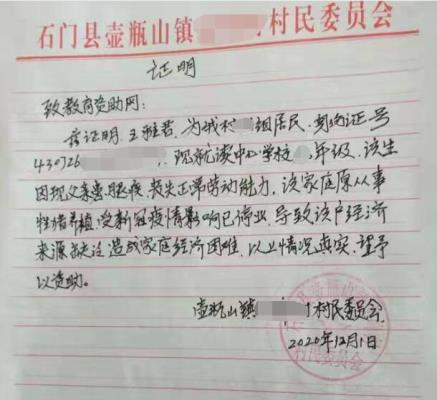 石门县壶瓶山镇 村民委员会
证明
致教育资助网：
兹证明，王雅君，为我村 组居民，身份证号
430726 ，现就读中心学校 年级，该生
因现父亲患眼疾，丧失正常劳动能力，该家庭原从事
牲猪养殖，受新冠疫情影响已停业，导致该户经济
来源缺乏，造成家庭经济困难，以上情况真实，望予
以资助。
壶瓶山镇 村民委员会
2020年12月1日
村民委员会